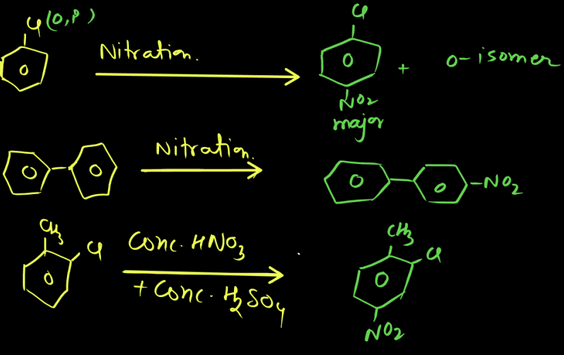 Cl (O,P)
Nitration.
Cl
NO2
major
+ O-isomer
Nitration.
NO2
CH3
Cl
Conc. HNO3
+ Conc. H2SO4
CH3
Cl
NO2